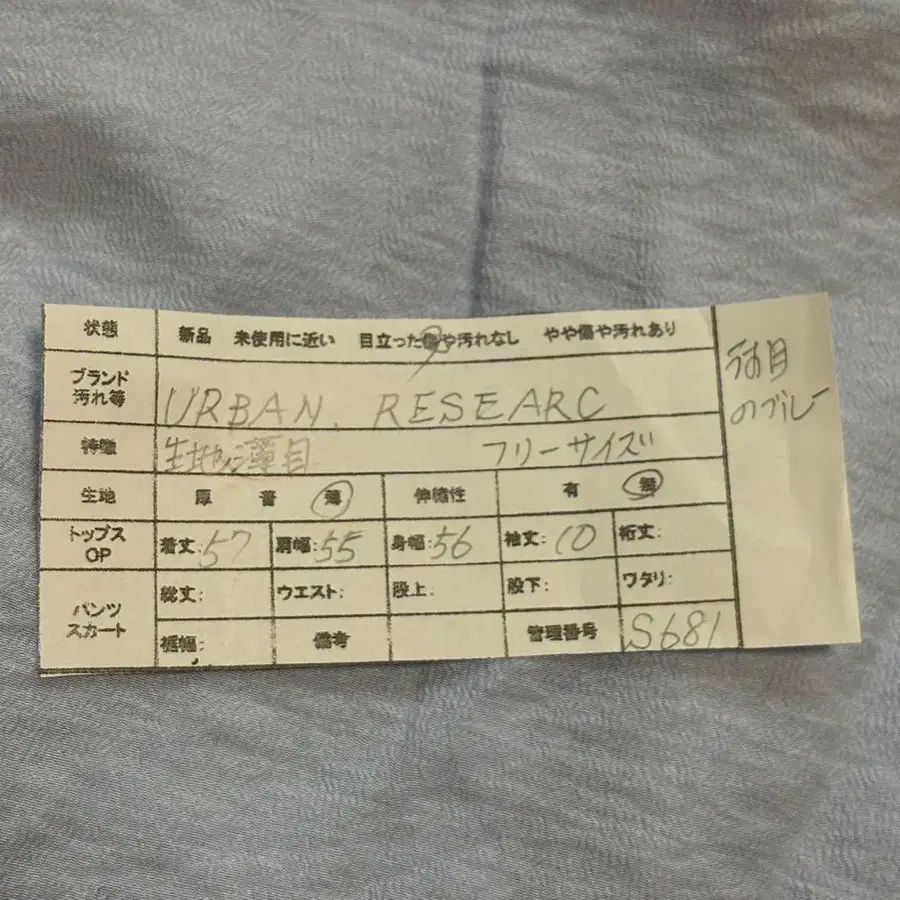 状態 新品 未使用に近い 目立った傷や汚れなし やや傷や汚れあり
ブランド
汚れ等 URBAN. RESEARC
特徴 生地薄目 フリーサイズ
生地 厚 普 薄 伸縮性 有 無
トップス
OP 着丈:57 肩幅:55 身幅:56 袖丈:10 裄丈:
パンツ
スカート 総丈: ウエスト: 股上: 股下: ワタリ:
裾幅: 備考 管理番号 S681
のブルー